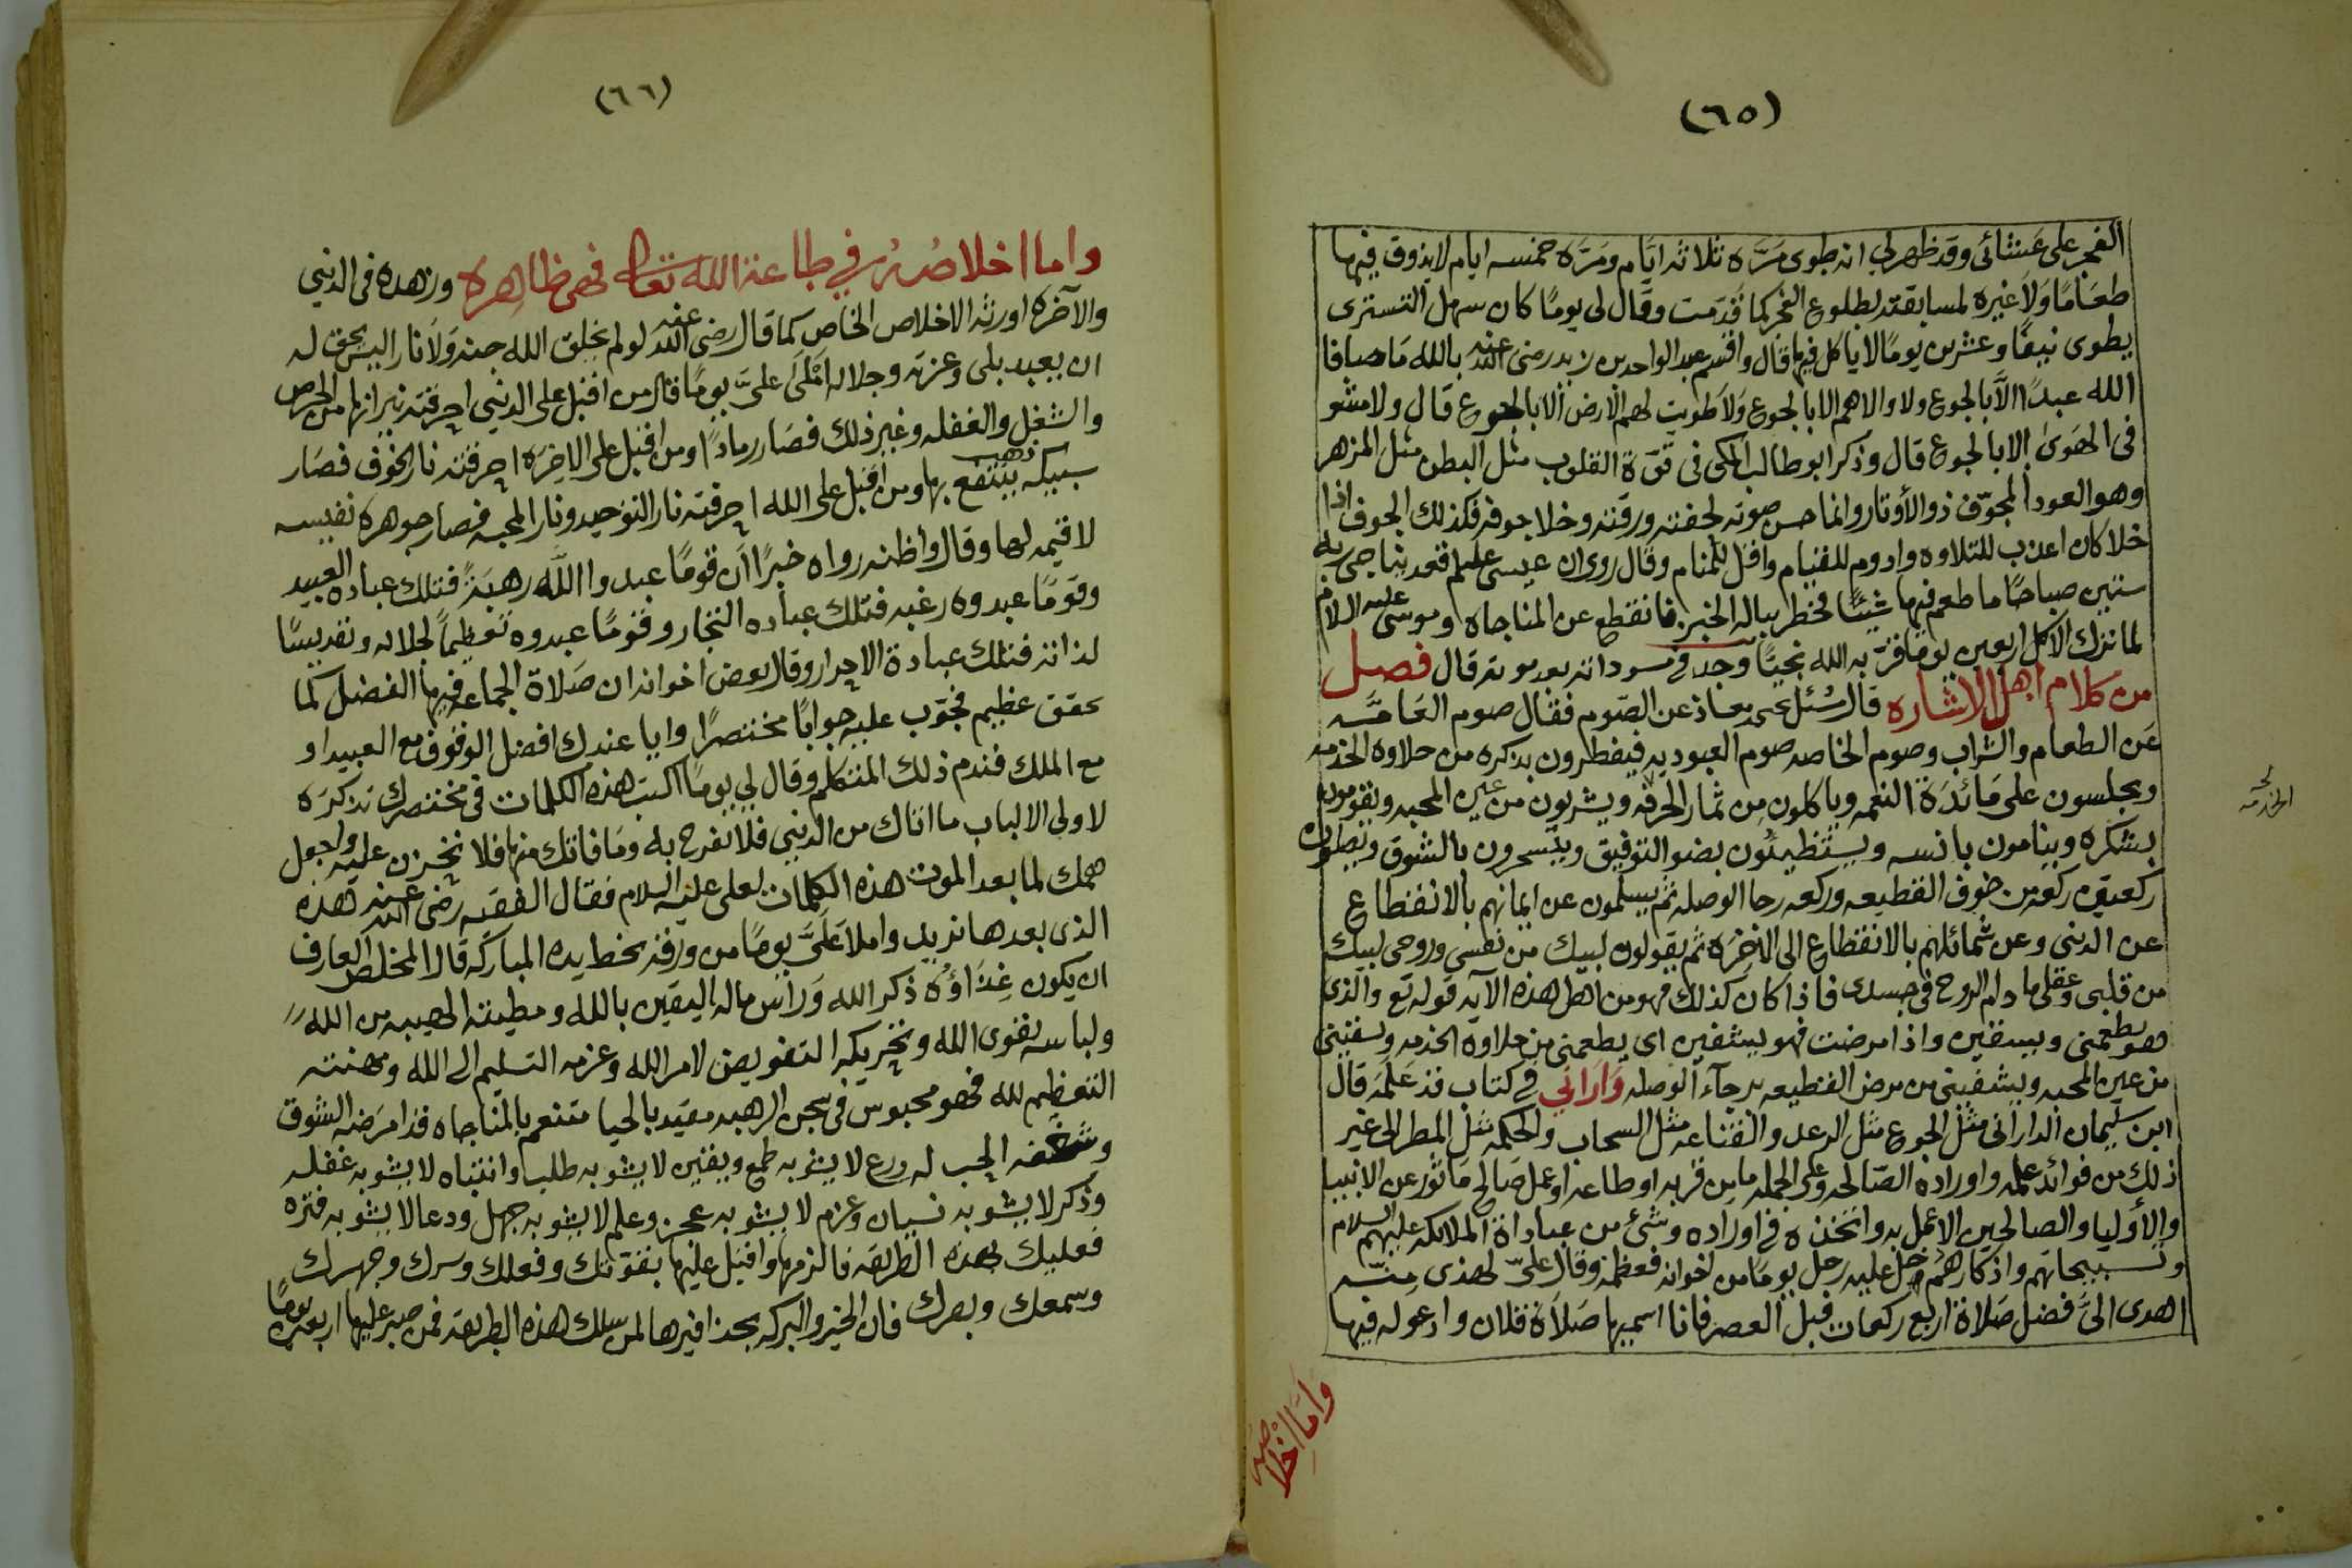 (٦٥)
الفجر على عشائى وقد ظهر لي انه طوى مَرَّه ثلاثه ايَّام ومَرَّه خمسه ايام لايذوق فيها
طعَامًا وَلاَ غيره لمسابقته لطلوع الفجر كما قَدمت وقَال لى يومًا كان سهل التسترى
يطوى نيفًا وعشرين يومًا لا ياكل فيها قال واقسم عبد الواحد بن زيد رضى الله عنه بالله مَا صافا
الله عبدًا الَّا بالجوع ولا والاهم الا بالجوع وَلاَ طويت لهم الارض الا بالجوع قال ولا مشو
فى الهَوىٰ الا بالجوع قال وذكر ابو طالب المكى فى قوّة القلوب مثل البطن مثل المزهر
وهو العود المجوّف ذو الأوتار وانما حسن صوته لخفته ورقته وخلا جوفه فكذلك الجوف اذا
خلا كان اعذب للتلاوه وادوم للقيام واقل للمنام وقال روى ان عيسى عليلم قعد يناجى ربه
ستين صباحًا ما طعم فيها شيئًا فخطر بباله الخبز فانقطع عن المناجاه وموسى عليه السلام
لما ترك الاكل اربعين يومًا قرّبه الله نجيًا وجد فى مسوداته بعد موته قال فصل
من كلام اهل الاشاره قال سُئل يحيى معاذ عن الصّوم فقال صوم العَامَّه
عَن الطعام والشراب وصوم الخاصه صوم العبوديه فيفطرون بذكره من حلاوه الخدمه
ويجلسون على مَائدَة النعمه وياكلون من ثمار الحرقه ويشربون من عين المحبه ويقومون
بشكره وينامون بانسه ويستظيئون بضو التوفيق ويتسحرون بالشوق ويصلون
ركعتين ركعه من خوف القطيعه وركعه رجا الوصله ثم يسلمون عن ايمانهم بالانقطاع
عن الدنى وعن شمائلهم بالانقطاع الى الاخرَه ثم يقولون لبيك من نفسى وروحى لبيك
من قلبى وعقلى ما دام الروح فى جسدى فاذا كان كذلك فهو من اهل هذه الآيه قوله تع والذى
هو يطعمنى ويسقين واذا مرضت فهو يشفين اى يطعمنى من حلاوه الخدمه ويسقينى
من عين المحبه ويشفينى من مرض القطيعه برجآء الوصله وَارَاني فى كتاب قد عَلمَه قال
ابن سُليمان الدارانى مثل الجوع مثل الرعد والقناعه مثل السحاب والحكمه مثل المطر الى غير
ذلك من فوائد علمه واوراده الصّالحه وعلى الجمله ما من قربه او طاعه او عمل صَالح مَاثور عن الانبيا
والأوليا والصالحين الا عمل به واتخذه فى اوراده وشئ من عباداة الملائكه عليهم السلام
وتسبيحاتهم واذكارهم دخل عليه رجل يومًا من اخوانه فعظمه وقال علىّ لهذى منّه
اهدى الىَّ فضل صَلاة اربع ركعات قبل العصر فانا اسميها صَلاَة فلان وادعو له فيها
الخدمه
وَامَّا اخْلاصه
(٦٦)
واما اخلاصُه في طاعة الله تعالى فهى ظاهِره وزهده فى الدنيى
والآخره اورثه الاخلاص الخاص كما قال رضى الله عنه لو لم يخلق الله جنه وَلاَ نار اليس يحق له
ان يعبد بلى وعزته وجلاله امْلىَ علىَّ يومًا قال من اقبل على الدنيى احرقته نيرانها من الحرص
والشغل والغفله وغير ذلك فصَار رمادًا ومن اقبل على الاخرَه احرقته نار الخوف فصَار
سبيكه ذهب ينتفع بها ومن اقبل على الله احرقته نار التوحيد ونار المحبه فصار جوهره نفيسه
لا قيمه لها وقال واظنه رواه خبرًا أن قومًا عبدوا الله رهبَةً فتلك عباده العبيد
وقومًا عبدوه رغبه فتلك عباده التجار وقومًا عبدوه تعظيماً لجلاله وتقديسًا
لذاته فتلك عبادة الاحرار وقال بعض اخوانه ان صَلاة الجماعه فيها الفضل كما
تحقق عظيم فجوّب عليه جوابًا مختصرًا وايا عندك افضل الوقوف مع العبيد او
مع الملك فندم ذلك المتكلم وقال لى يومًا اكتب هذه الكلمات فى مختصرك تذكرَه
لاولى الالباب ما اتاك من الدنيى فلا تفرح به ومَا فاتك منها فلا تحزن عليه واجعل
همك لما بعد الموت هذه الكلمات لعلى عليه السلام فقال الفقيه رضى الله عنه هذه
الذى بعدها نزيد واملاَ عَلىَّ يومًا من ورقه بخط يده المباركَه قال المخلص العارف
ان يكون غِذَاؤه ذكر الله وَرَاس ماله اليقين بالله ومطيته الهيبه من الله
ولباسه تقوى الله وتحريكه التفويض لامر الله وعزمه التسليم الى الله ومهنته
التعظيم لله فهو محبوس فى سجن الرهبه مقيد بالحيا متنعم بالمناجاه قد امرَضه الشوق
وشغفه الحب له ورع لا يشوبه طمع ويقين لا يشوبه طلب وانتباه لا يشوبه غفله
وذكر لا يشوبه نسيان وعزم لا يشوبه عجز وعلم لا يشوبه جهل ودعا لا يشوبه فتره
فعليك بهذه الطريقه فالزمها واقبل عليها بقوّتك وفعلك وسرك وجهرك
وسمعك وبصرك فان الخير والبركه بحذافيرها لمن سلك هذه الطريقه فمن صبر عليها اربعين يومًا